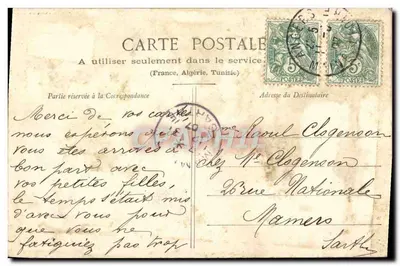 CARTE POSTALE
A utiliser seulement dans le service
(France, Algérie, Tunisie)
Partie réservée à la Correspondance
Adresse du Destinataire
Merci de vos cartes
nous espérons
vous êtes arrivés à
bon port avec
vos petites filles,
le temps s'était mis
d'avec vous pour
que vous ne
fatiguiez pas trop
Mme Raoul Clogenson
chez Mr Clogenson
26 rue Nationale
Mamers
Sarthe